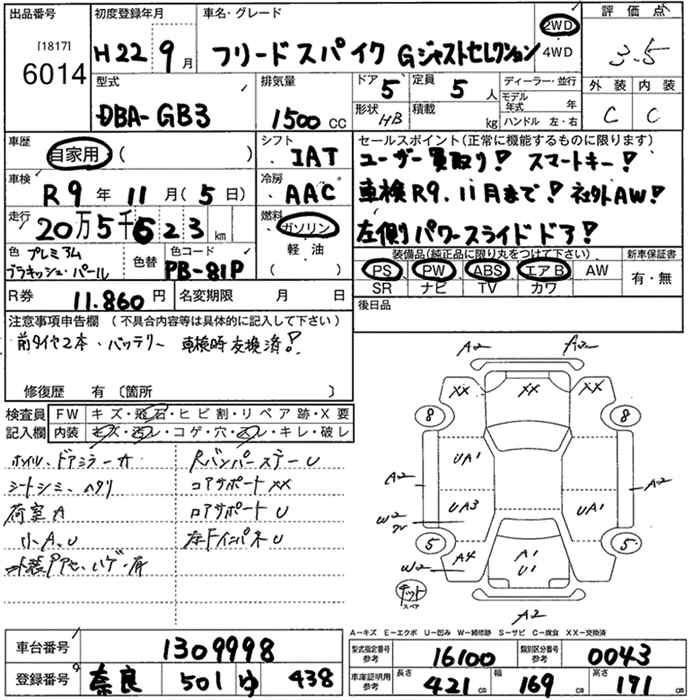 出品番号 初度登録年月 車名・グレード 2WD 4WD 評価点
[1817]
6014 H22 9月 フリードスパイク GジャストセレクシON 3.5
型式 排気量 ドア 5 定員 5人 ディーラー・並行 外装 内装
DBA-GB3 1500 CC 形状 HB 積載 kg モデル年式 年 C C
ハンドル 左・右
車歴 シフト セールスポイント(正常に機能するものに限ります)
自家用・( ) IAT ユーザー買取り! スマートキー!
車検 冷房
R9年 11月(5日) AAC 車検R9.11月まで! 社外AW!
走行 燃料
20万5千523km ガソリン 左側パワースライドドア!
色 プレミアム 色替 色コード 軽油 装備品(純正品に限り丸をつけて下さい) 新車保証書
ブラキッシュ・パール PB-81P ( ) PS PW ABS エアB AW 有・無
SR ナビ TV カワ
R券 11.860円 名変期限 月 日 後日品
注意事項申告欄 (不具合内容等は具体的に記入して下さい)
前タイヤ2本、バッテリー 車検時交換済!
修復歴 有〔箇所 〕
検査員 FW キズ・飛石・ヒビ割・リペア跡・X要
記入欄 内装 キズ・汚レ・コゲ・穴・スレ・キレ・破レ
ホイル、ドアミラーA RバンパーステーU
シートシミ、ヘタリ コアサポートXX
荷室A ロアサポートU
小A、U 左FインパネU
外装アセ、ハゲ有
A2 A2
XX XX XX
8 8
UA1
A2 A2
W2 UA3 UA1
5 5
W2 A4 A1 U1
スペア
A2
A-キズ E-エクボ U-凹み W-補修跡 S-サビ C-腐食 XX-交換済
車台番号 1309998 型式指定番号 参考 16100 類別区分番号 参考 0043
登録番号 奈良 501 ゆ 438 車庫証明用 参考 長さ 421 cm 幅 169 cm 高さ 171 cm